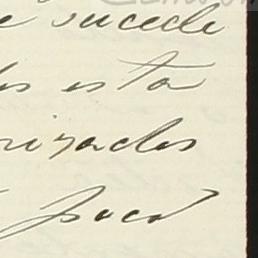 e sucede
os esta
rizados
poco